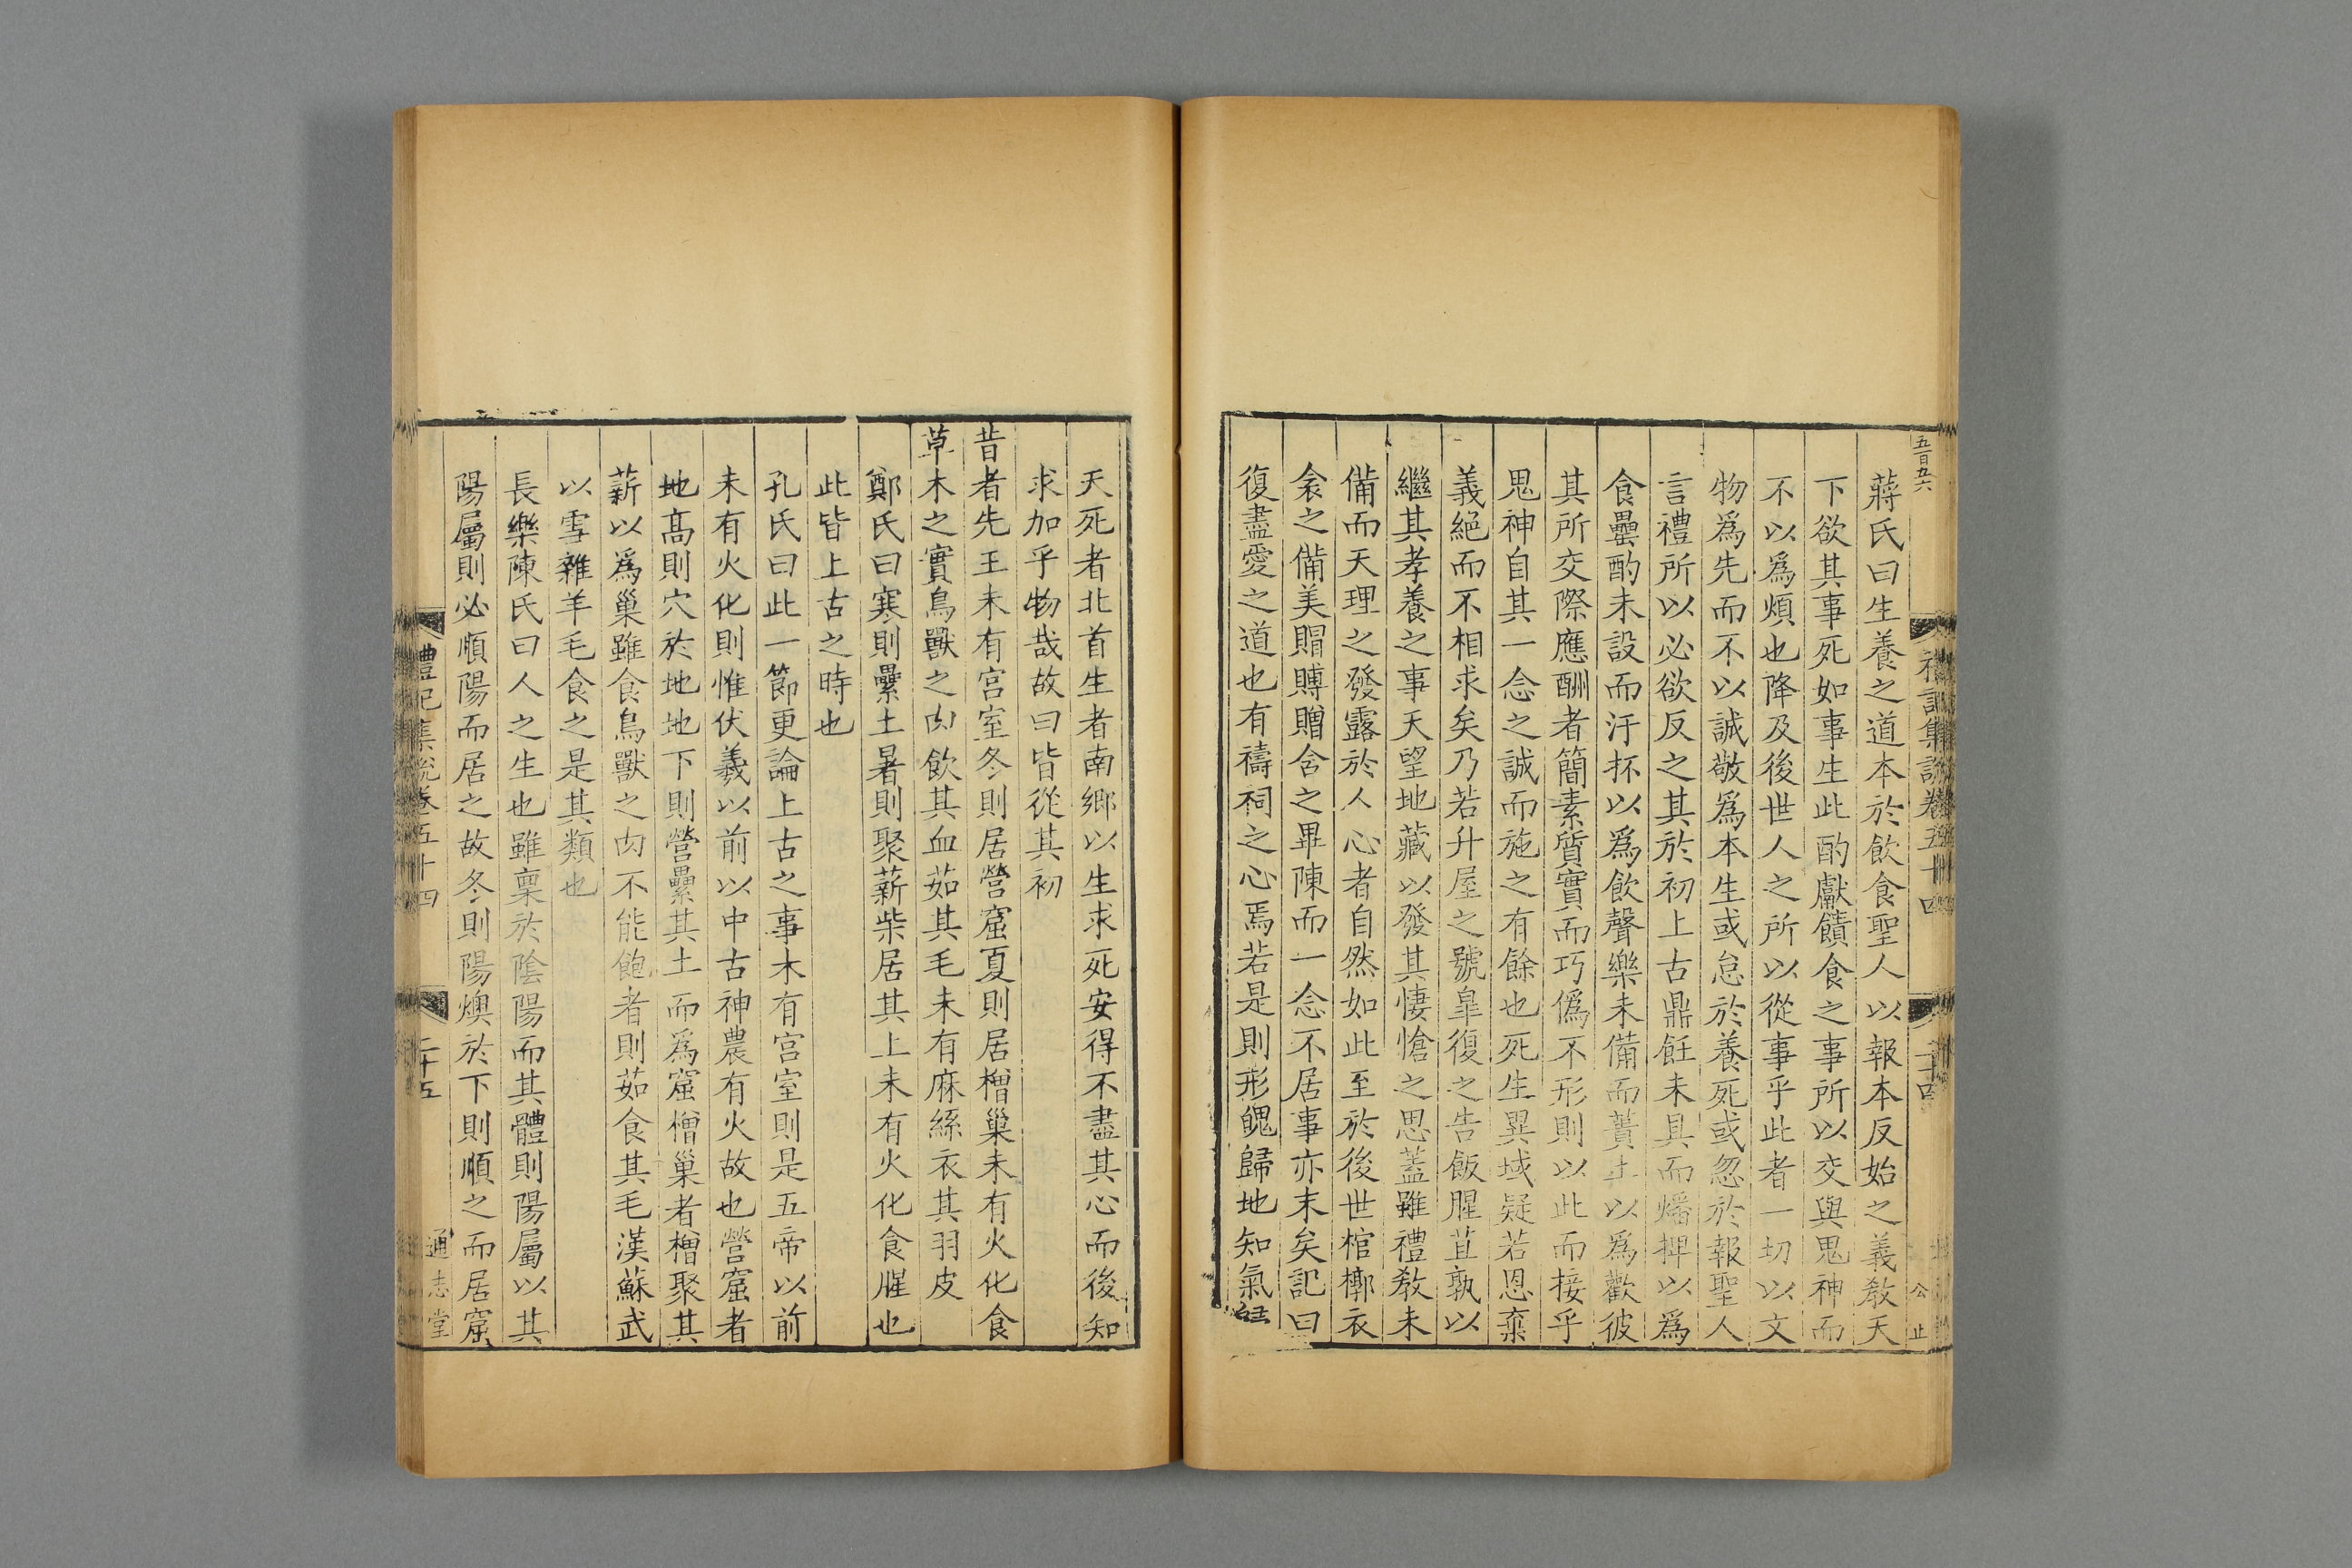 五百九六
禮記集說卷五十四
二十四
公止
蔣氏曰生養之道本於飲食聖人以報本反始之義敎天
下欲其事死如事生此酌獻饋食之事所以交與鬼神而
不以爲煩也降及後世人之所以從事乎此者一切以文
物爲先而不以誠敬爲本生或怠於養死或忽於報聖人
言禮所以必欲反之其於初上古鼎飪未具而燔捭以爲
食罍酌未設而汙抔以爲飲聲樂未備而蕢土以爲歡彼
其所交際應酬者簡素質實而巧僞不形則以此而接乎
鬼神自其一念之誠而施之有餘也死生異域疑若恩棄
義絕而不相求矣乃若升屋之號皐復之告飯腥苴孰以
繼其孝養之事天望地藏以發其悽愴之思蓋雖禮敎未
備而天理之發露於人心者自然如此至於後世棺槨衣
衾之備美賵賻贈含之畢陳而一念不居事亦末矣記曰
復盡愛之道也有禱祠之心焉若是則形魄歸地知氣在
天死者北首生者南鄉以生求死安得不盡其心而後知
求加乎物哉故曰皆從其初
昔者先王未有宮室冬則居營窟夏則居橧巢未有火化食
草木之實鳥獸之肉飲其血茹其毛未有麻絲衣其羽皮
鄭氏曰寒則纍土暑則聚薪柴居其上未有火化食腥也
此皆上古之時也
孔氏曰此一節更論上古之事木有宮室則是五帝以前
未有火化則惟伏羲以前以中古神農有火故也營窟者
地高則穴於地地下則營纍其土而爲窟橧巢者橧聚其
薪以爲巢雖食鳥獸之肉不能飽者則茹食其毛漢蘇武
以雪雜羊毛食之是其類也
長樂陳氏曰人之生也雖稟於陰陽而其體則陽屬以其
陽屬則必順陽而居之故冬則陽燠於下則順之而居窟
禮記集說卷五十四
二十五
通志堂